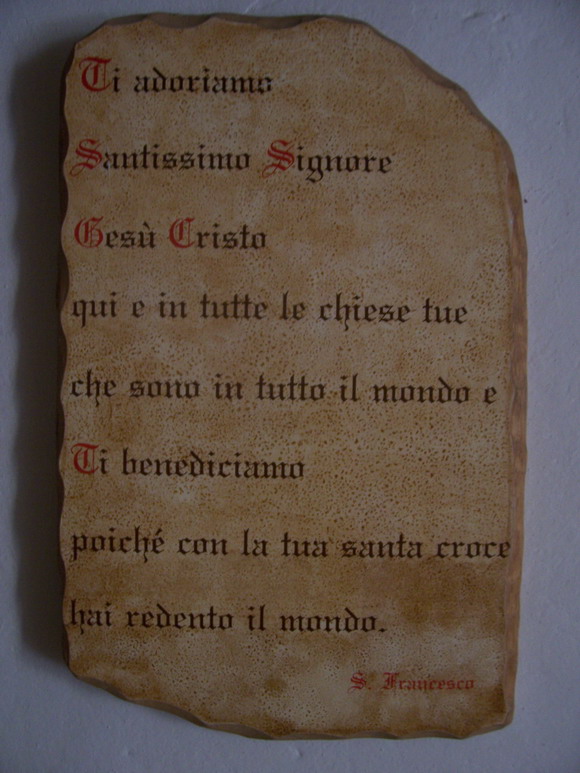 Ti adoriamo
Santissimo Signore
Gesù Cristo
qui e in tutte le chiese tue
che sono in tutto il mondo e
Ti benediciamo
poiché con la tua santa croce
hai redento il mondo.
S. Francesco